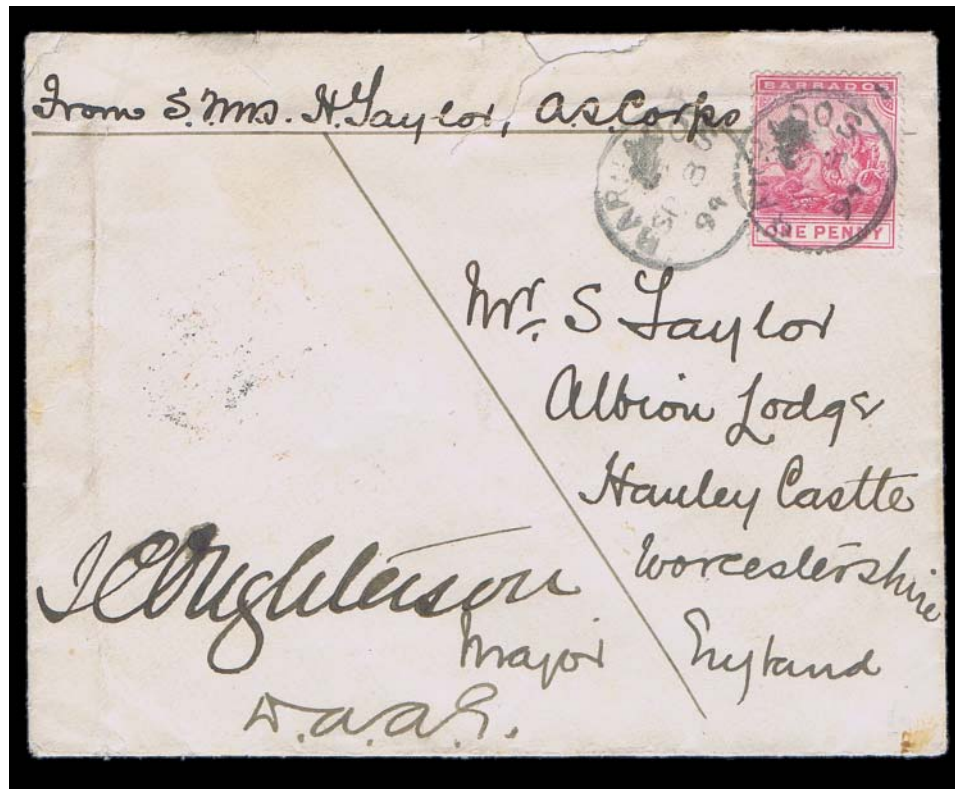 From S.M.S. H. Taylor, A.S. Corps
BARBADOS
ONE PENNY
BARBADOS
SP 8
99
BADOS
99
Mr. S Taylor
Albion Lodge
Hanley Castle
Worcestershire
England
Major
D.A.A.G.